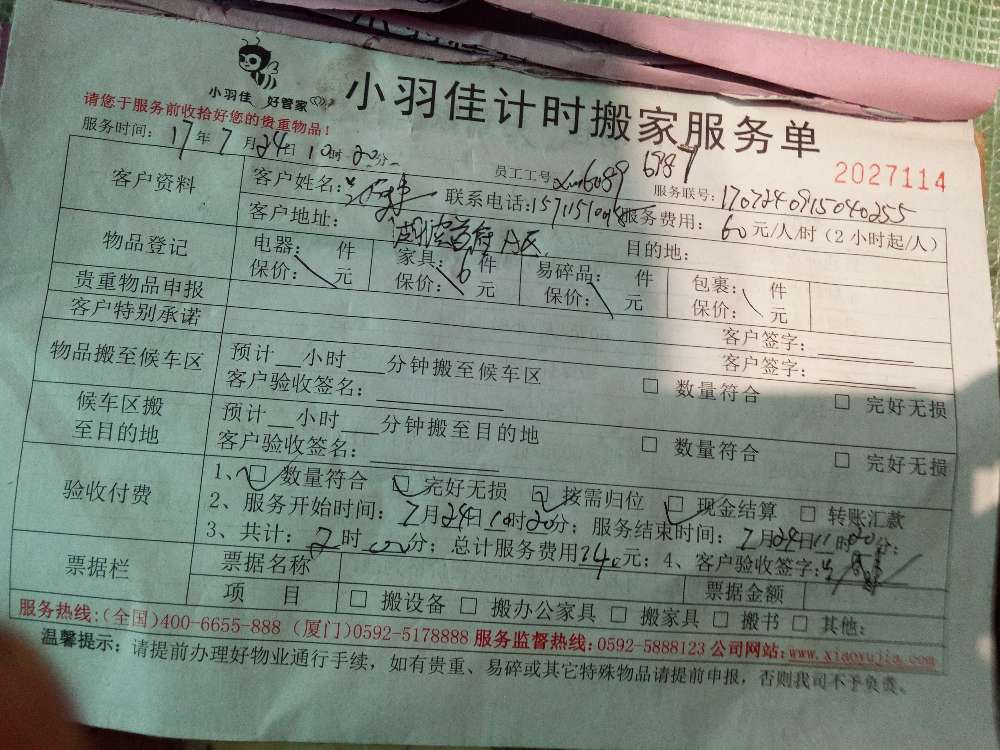 小羽佳 好管家
小羽佳计时搬家服务单
请您于服务前收拾好您的贵重物品！
2027114
服务时间：17年7月24日10时20分
员工工号 6089 6987
服务联号：1707240915040255
客户资料
客户姓名：
联系电话：
服务费用：60元/人/时（2小时起/人）
客户地址：首府A区
目的地：
物品登记
电器： 件
家具：6件
易碎品： 件
包裹： 件
保价： 元
保价： 元
保价： 元
保价： 元
贵重物品申报
客户签字：
客户特别承诺
客户签字：
物品搬至候车区
预计 小时 分钟搬至候车区
客户验收签名：
□ 数量符合
□ 完好无损
候车区搬
至目的地
预计 小时 分钟搬至目的地
客户验收签名：
□ 数量符合
□ 完好无损
验收付费
1、□ 数量符合 □ 完好无损 □ 按需归位 □ 现金结算 □ 转账汇款
2、服务开始时间：7月24日10时20分；服务结束时间：7月24日11时20分；
3、共计：2时00分；总计服务费用240元；4、客户验收签字：
票据栏
票据名称
票据金额
项 目
□ 搬设备 □ 搬办公家具 □ 搬家具 □ 搬书 □ 其他：
服务热线：(全国)400-6655-888 (厦门)0592-5178888 服务监督热线：0592-5888123 公司网站：www.xiaoyujia.com
温馨提示：请提前办理好物业通行手续，如有贵重、易碎或其它特殊物品请提前申报，否则我司不予负责。